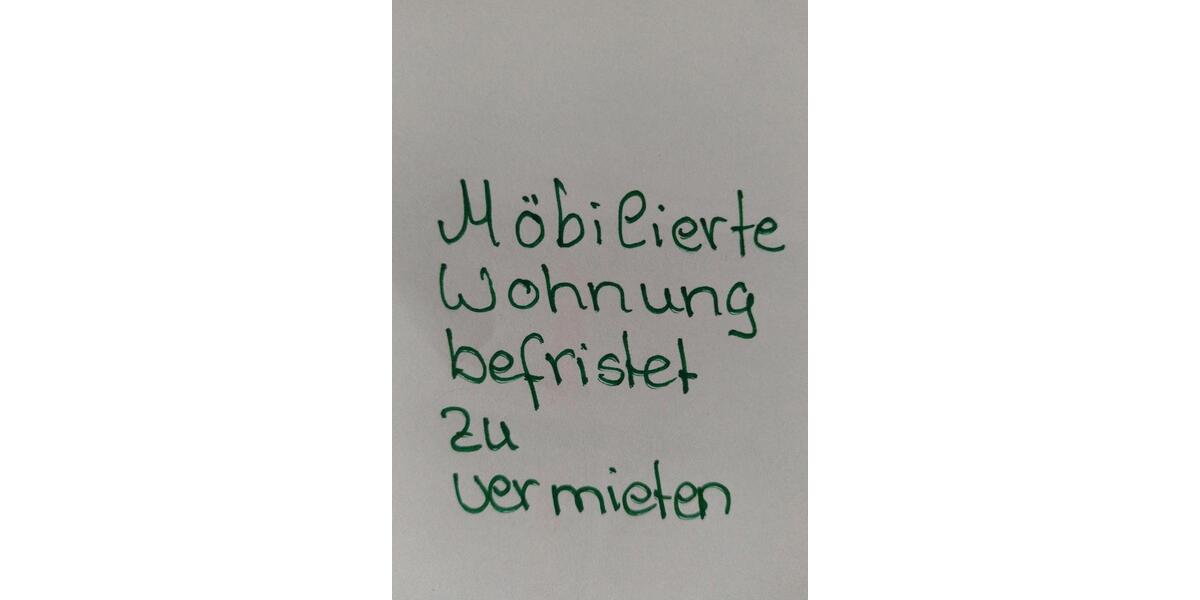 Möbilierte
Wohnung
befristet
zu
vermieten